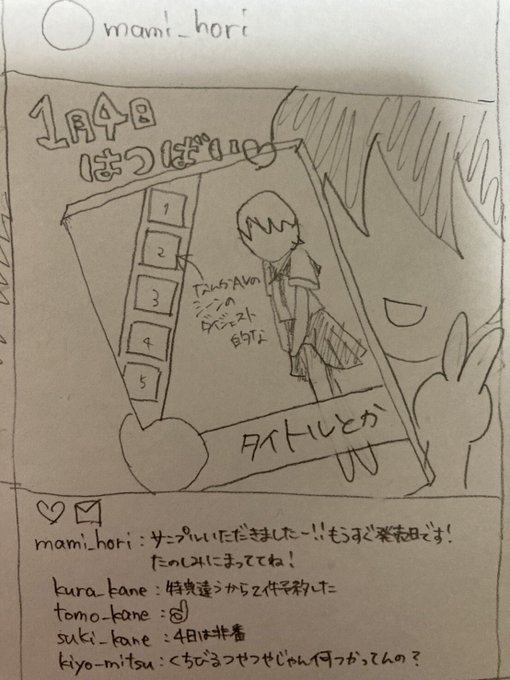 mami_hori
1月4日
はつばい♡
1
2
3
4
5
なんかAVの
シーンの
ダイジェスト
的な
タイトルとか
mami_hori:サンプルいただきましたー!!もうすぐ発売日です!
たのしみにまっててね!
kura_kane:特典違うから2件予約した
tomo_kane:👍
suki_kane:4日は非番
kiyo-mitsu:くちびるつやつやじゃん何つかってんの?